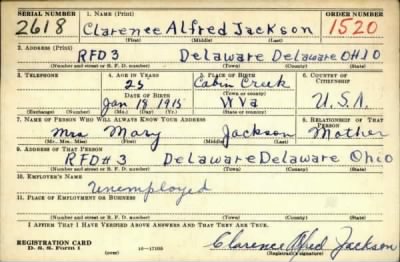 SERIAL NUMBER 1. NAME (Print) ORDER NUMBER
2618 Clarence Alfred Jackson 1520
(First) (Middle) (Last)
2. ADDRESS (Print)
RFD 3 Delaware Delaware OHIO
(Number and street or R. F. D. number) (Town) (County) (State)
3. TELEPHONE 4. AGE IN YEARS 5. PLACE OF BIRTH 6. COUNTRY OF CITIZENSHIP
25 Cabin Creek
DATE OF BIRTH (Town or county)
Jan 18 1915 WVa U.S.A.
(Exchange) (Number) (Mo.) (Day) (Yr.) (State or country)
7. NAME OF PERSON WHO WILL ALWAYS KNOW YOUR ADDRESS 8. RELATIONSHIP OF THAT PERSON
Mrs Mary Jackson Mother
(Mr., Mrs., Miss) (First) (Middle) (Last)
9. ADDRESS OF THAT PERSON
RFD# 3 Delaware Delaware Ohio
(Number and street or R. F. D. number) (Town) (County) (State)
10. EMPLOYER'S NAME
Unemployed
11. PLACE OF EMPLOYMENT OR BUSINESS
(Number and street or R. F. D. number) (Town) (County) (State)
I AFFIRM THAT I HAVE VERIFIED ABOVE ANSWERS AND THAT THEY ARE TRUE.
REGISTRATION CARD Clarence Alfred Jackson
D. S. S. Form 1 (over) 16—17105 (Registrant's signature)